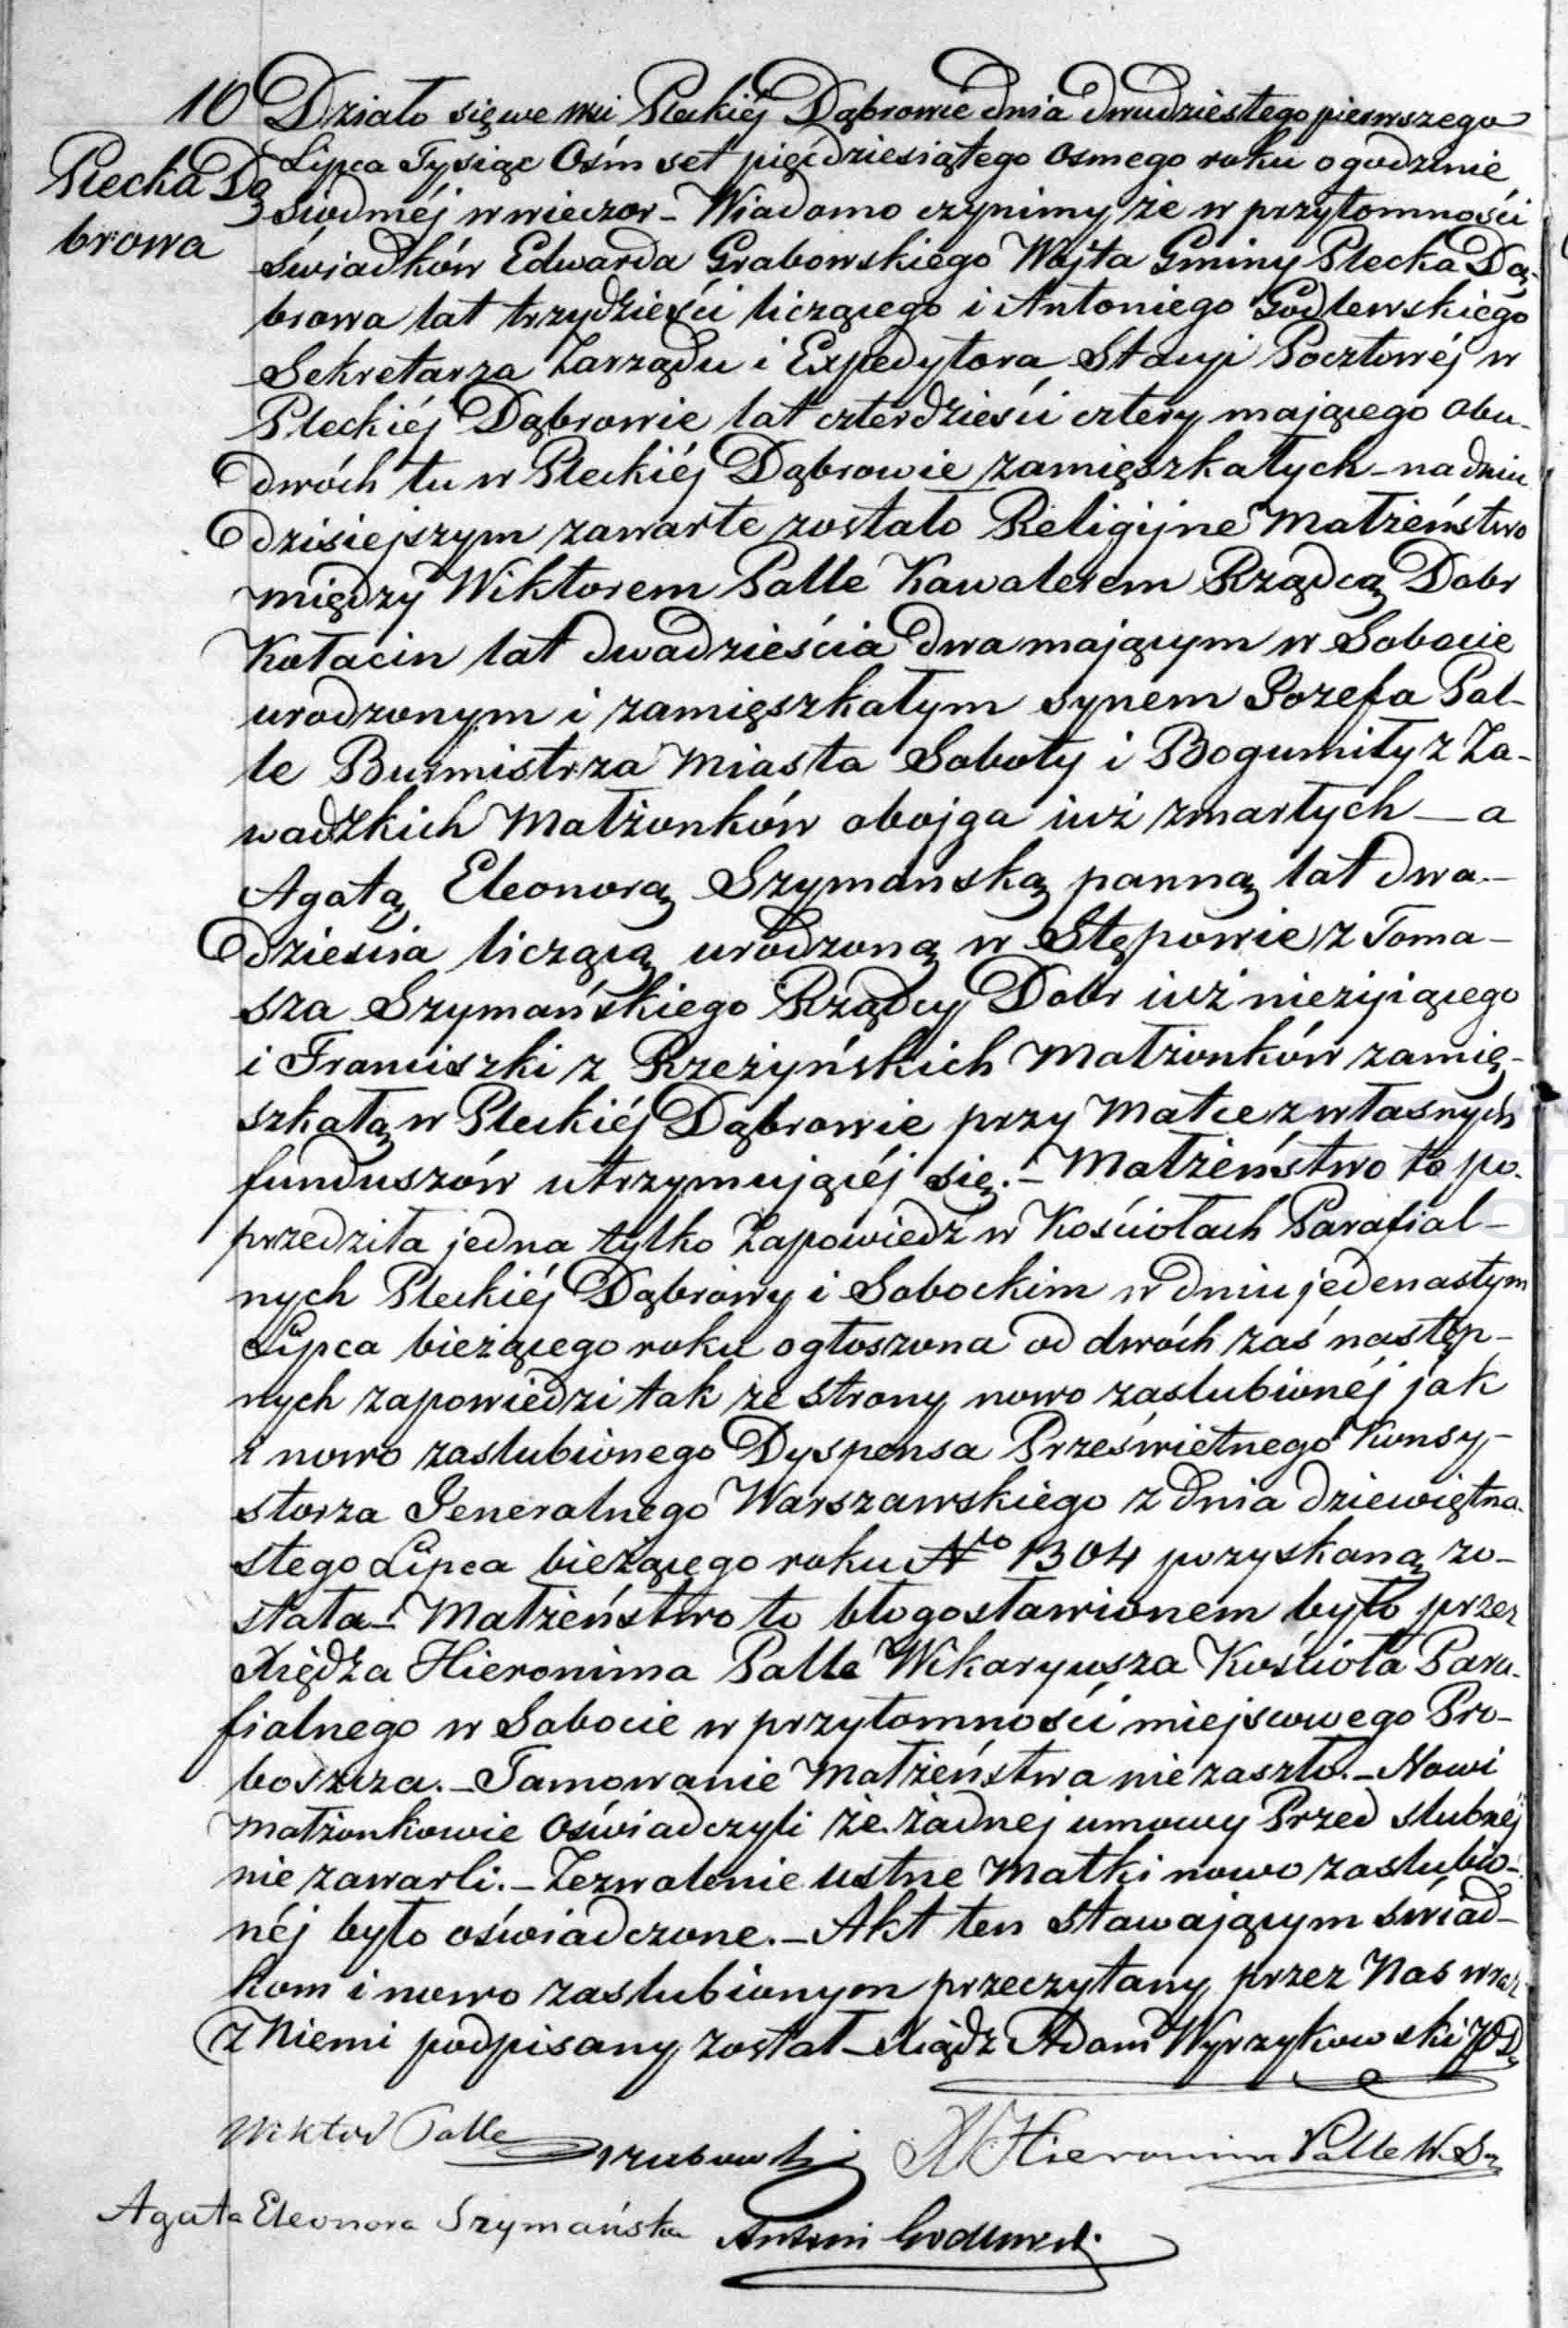 10
Plecka Dą
browa
Działo się we wsi Pleckiéj Dąbrowie dnia dwudziestego pierwszego
Lipca Tysiąc Ośm set pięćdziesiątego osmego roku o godzinie
siódméj w wieczor – Wiadomo czynimy, że w przytomności
świadków Edwarda Grabowskiego Wójta Gminy Plecka Dą-
browa lat trzydzieści liczącego i Antoniego Godlewskiego
Sekretarza Zarządu i Expedytora Stacyi Pocztowéj w
Pleckiéj Dąbrowie lat czterdzieści cztery mającego obu-
dwóch tu w Pleckiéj Dąbrowie zamięszkałych – na dniu
dzisiejszym zawarte zostało Religijne Małżeństwo
między Wiktorem Palle Kawalerem Rządcą Dobr
Kołacin lat dwadzieścia dwa mającym w Sobocie
urodzonym i zamięszkałym synem Jozefa Pal-
le Burmistrza Miasta Soboty i Bogumiły z Za-
wadzkich Małżonków obojga iuż zmarłych — a
Agatą Eleonorą Szymańską panną lat dwa-
dzieścia liczącą urodzoną w Stępowie z Toma-
sza Szymańskiego Rządcy Dobr iuż nieżyiącego
i Franciszki z Rzeżyńskich Małżonków zamię-
szkałą w Pleckiéj Dąbrowie przy Matce z własnych
funduszów utrzymującéj się. – Małżeństwo to po-
przedziła jedna tylko Zapowiedź w Kościołach Parafial-
nych Pleckiéj Dąbrowy i Sobockim w dniu jedenastym
Lipca bieżącego roku ogłoszona od dwóch zaś następ-
nych zapowiedzi tak ze strony nowo zaslubionéj jak
i nowo zaslubionego Dyspensa Prześwietnego Konsy-
storza Jeneralnego Warszawskiego z dnia dziewiętna-
stego Lipca bieżącego roku No 1304 pozyskaną zo-
stała – Małżeństwo to błogosławionem było przez
Xiędza Hieronima Palle Wikaryusza Kościoła Para-
fialnego w Sobocie w przytomności miejscowego Pro-
boszcza. – Tamowanie Małżeństwa nie zaszło. – Nowi
małżonkowie Oświadczyli że żadnej umowy Przed slubnéj
nie zawarli. – Zezwolenie ustne Matki nowo zaslubio-
néj było oświadczone. – Akt ten stawającym świad-
kom i nowo zaslubionym przeczytany przez Nas wraz
z Niemi podpisany został – Xiądz Adam Wyrzykowski P.P.D.
Wiktor Palle
Grabowski
X Hieronim Palle W.S.
Agata Eleonora Szymańska
Antoni Godlewski